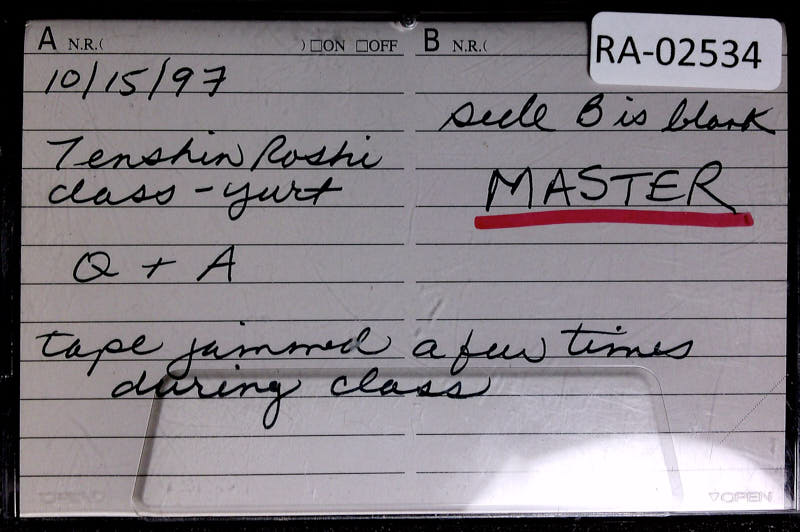 A N.R.( ) □ON □OFF B N.R.(
RA-02534
10/15/97
side B is blank
Tenshin Roshi
class - yurt
MASTER
Q + A
tape jammed a few times
during class
OPEN
OPEN